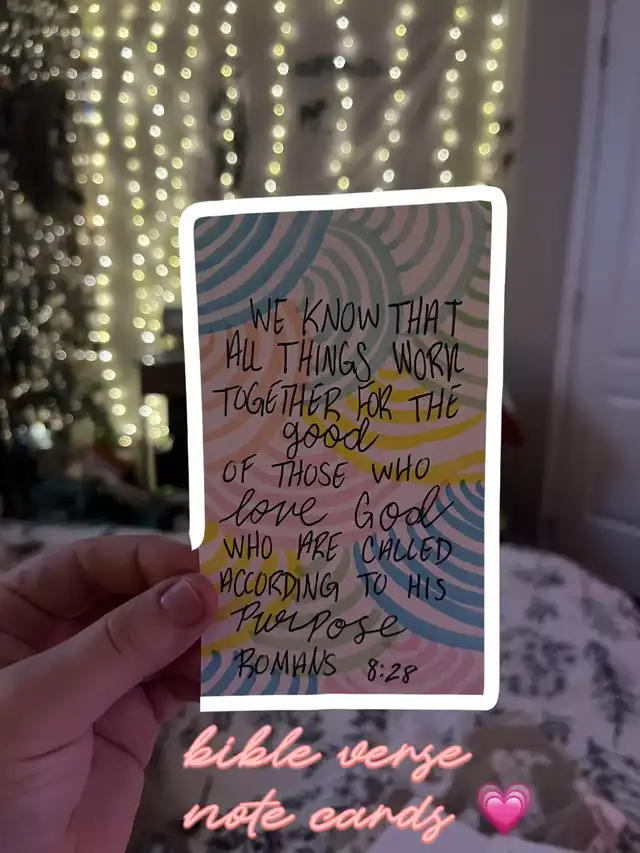 WE KNOW THAT
ALL THINGS WORK
TOGETHER FOR THE
good
OF THOSE WHO
love God
WHO ARE CALLED
ACCORDING TO HIS
Purpose
ROMANS 8:28
bible verse
note cards 💗